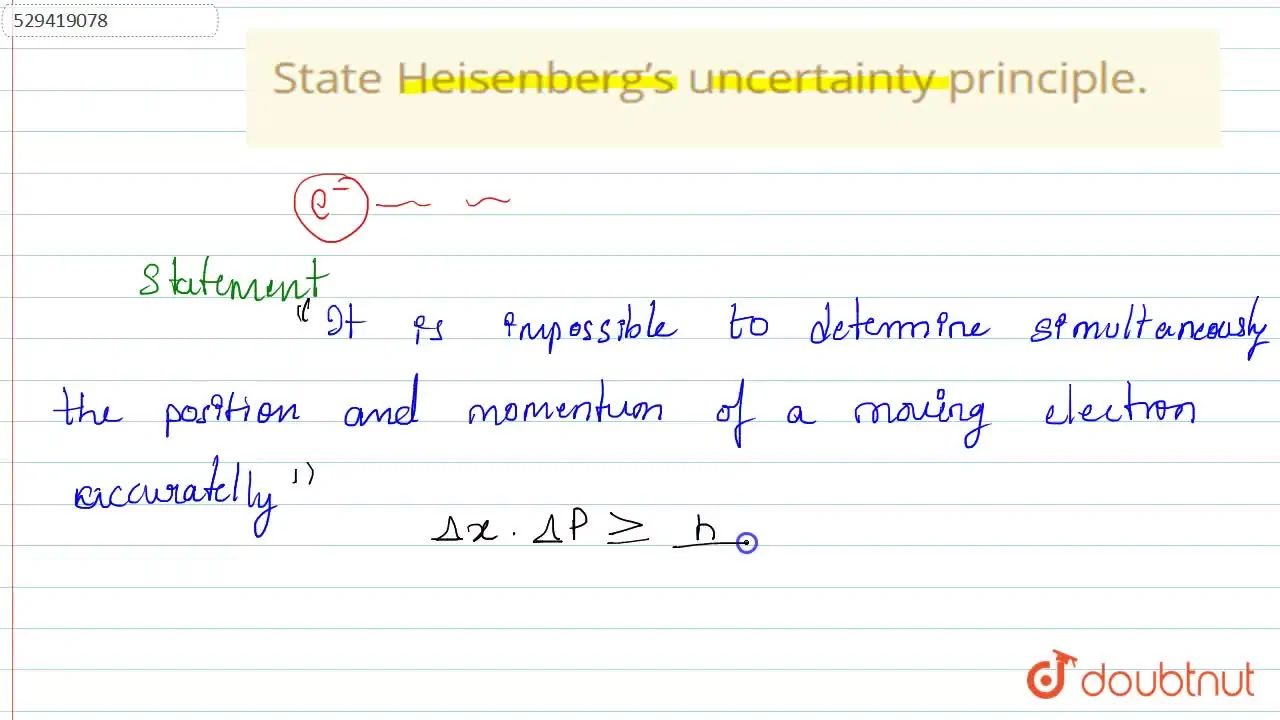 529419078
State Heisenberg's uncertainty principle.
e⁻
Statement
"It is impossible to determine simultaneously
the position and momentum of a moving electron
accuratelly"
Δx . ΔP ≥ h
doubtnut